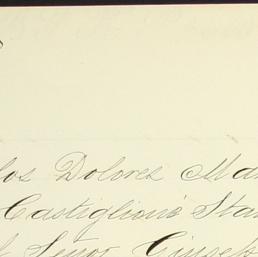 los Dolores Ma
Castiglioni Sta
Señor Giusep